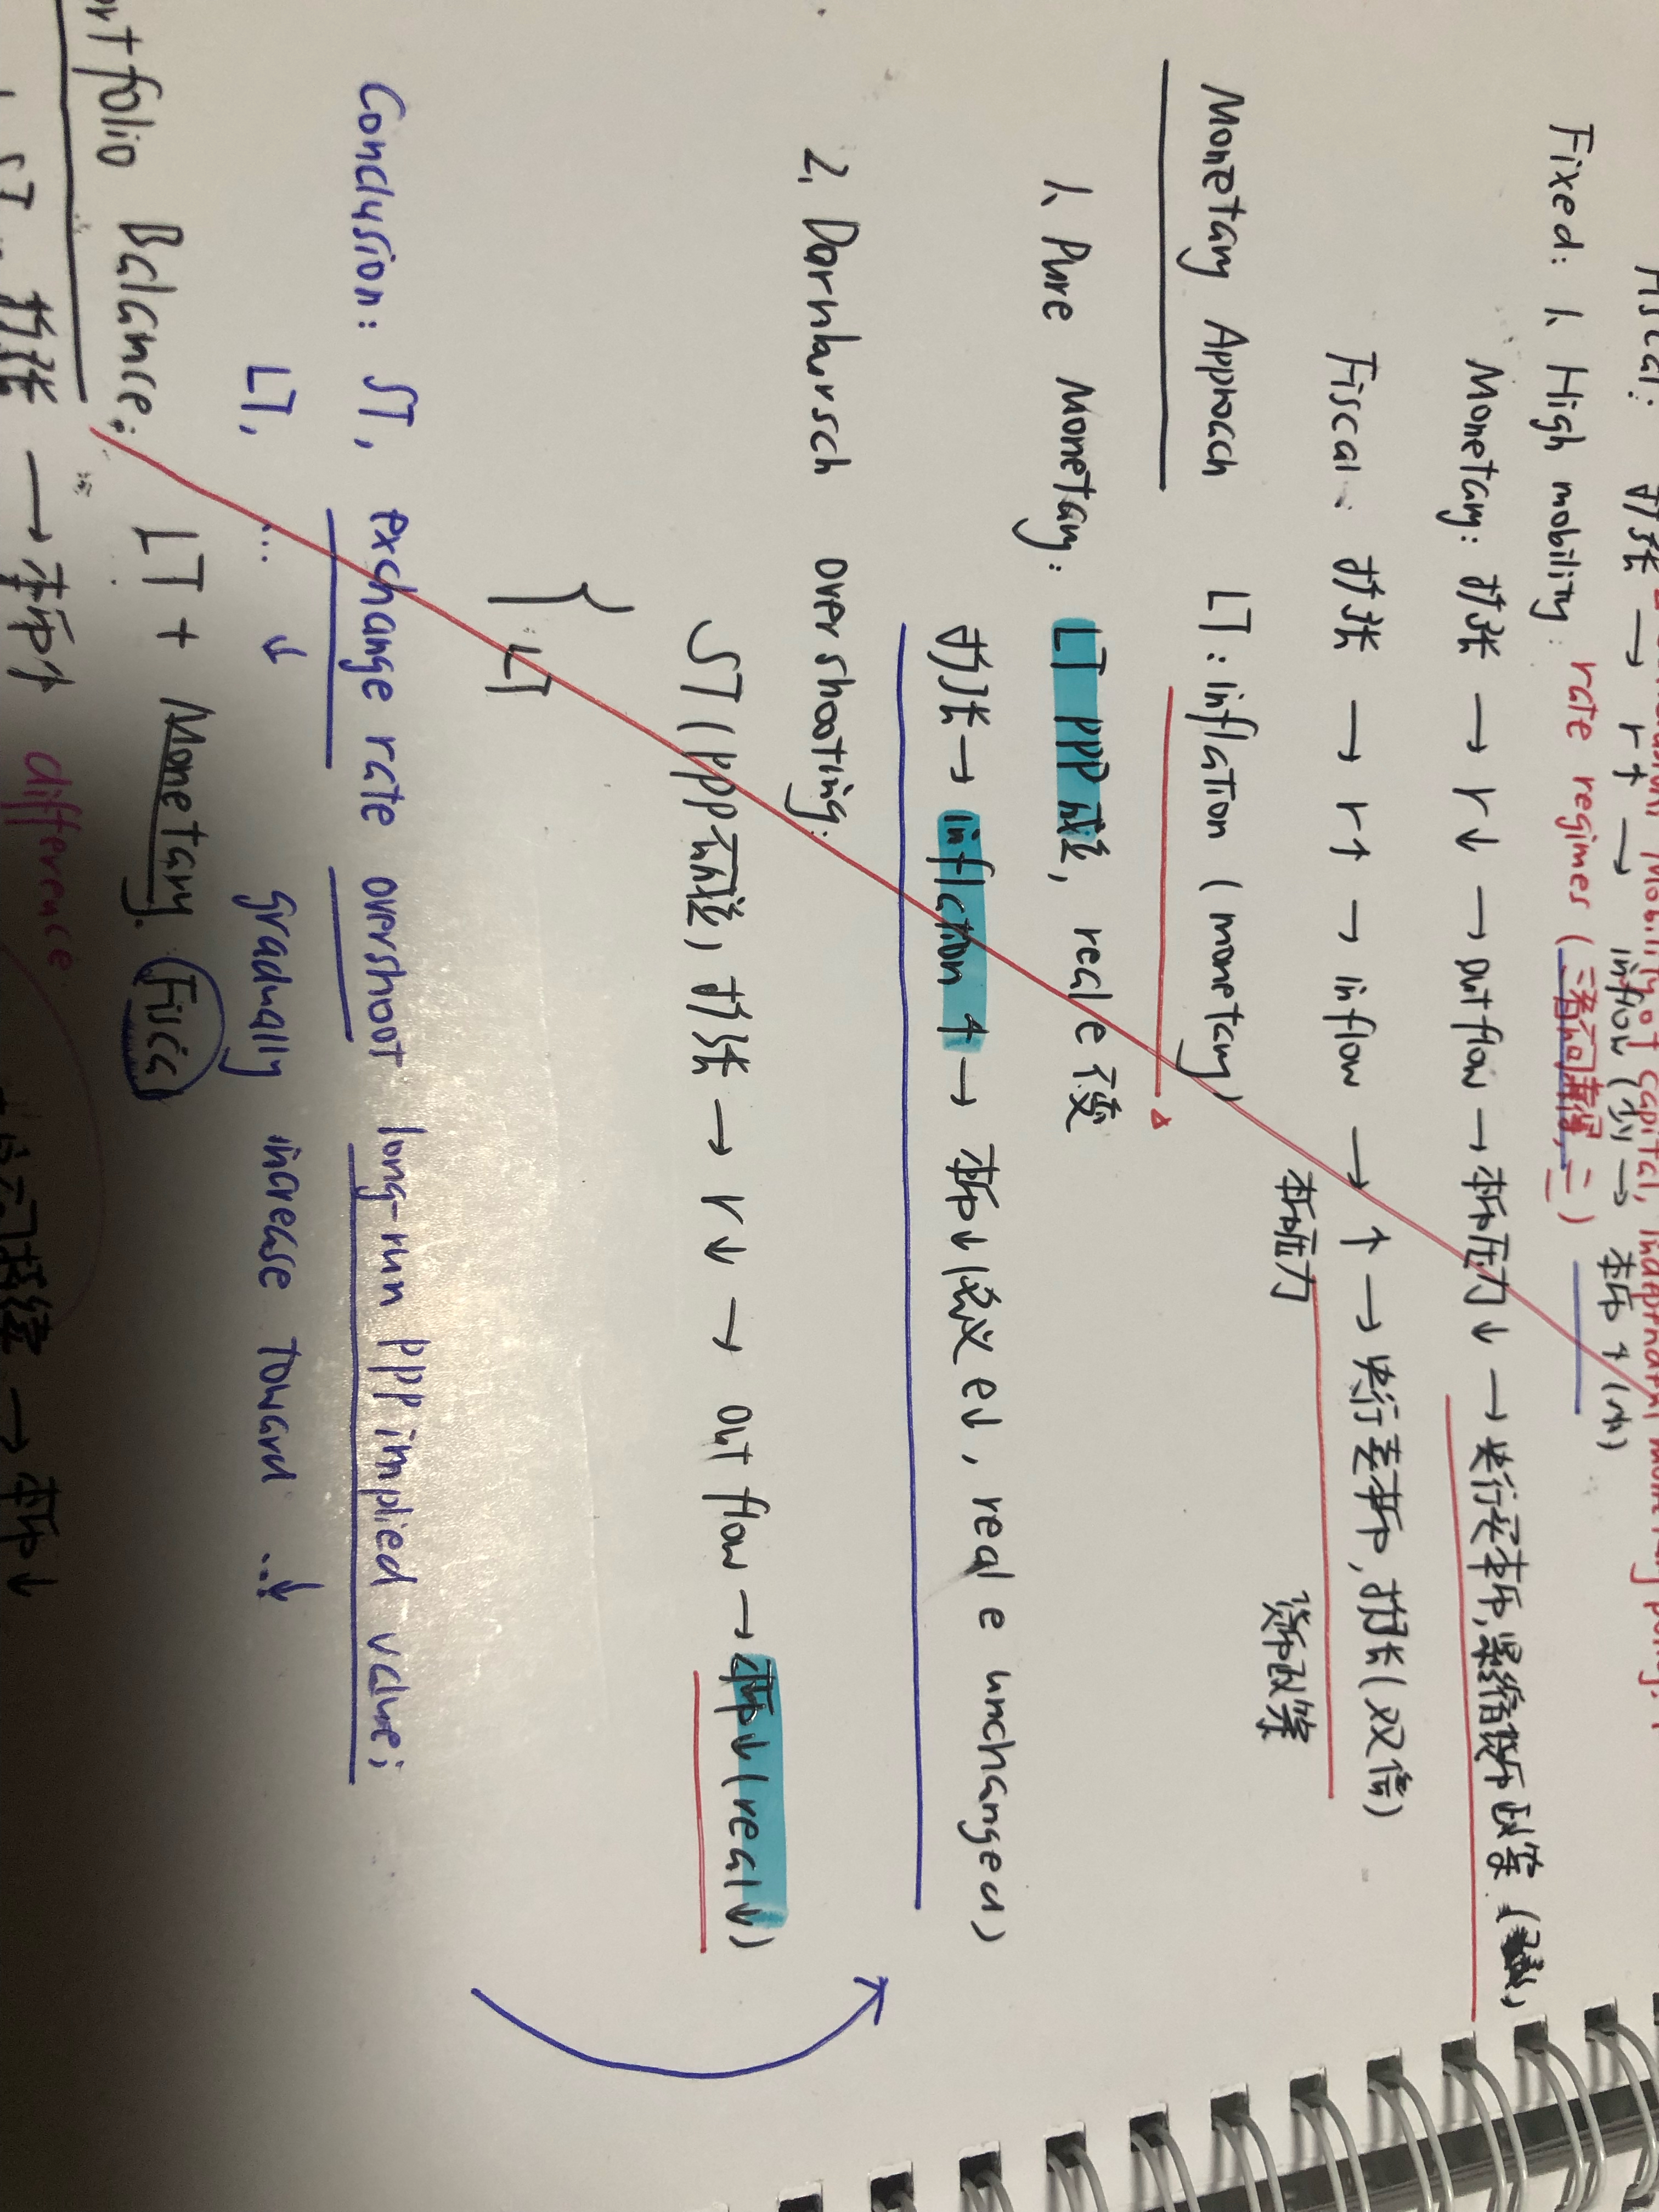 Fiscal: 扩张 → r↑ → inflow (少) → 本币↑(小)
rate regimes (
Fixed: 1. High mobility:
Monetary: 扩张 → r↓ → outflow → 本币压力↓ → 央行买本币, 紧缩货币政策
Fiscal: 扩张 → r↑ → inflow → ↑ → 央行卖本币, 扩张(双倍)
本币压力
货币政策
Monetary Approach LT: inflation (monetary)
1. Pure Monetary: LT PPP成立, real 不变
扩张→ inflation ↑ → 本币↓(名义e↓, real e unchanged)
2. Dornbursch overshooting:
ST (PPP不成立, 扩张 → r↓ → outflow → 本币↓(real↓)
} LT
Conclusion: ST, exchange rate overshoot long-run PPP implied value;
LT, ... ↓ gradually increase toward ...↓
Portfolio Balance: LT + Monetary. Fiscal
ST: 扩张 → 本币↑ difference
→ 本币↓